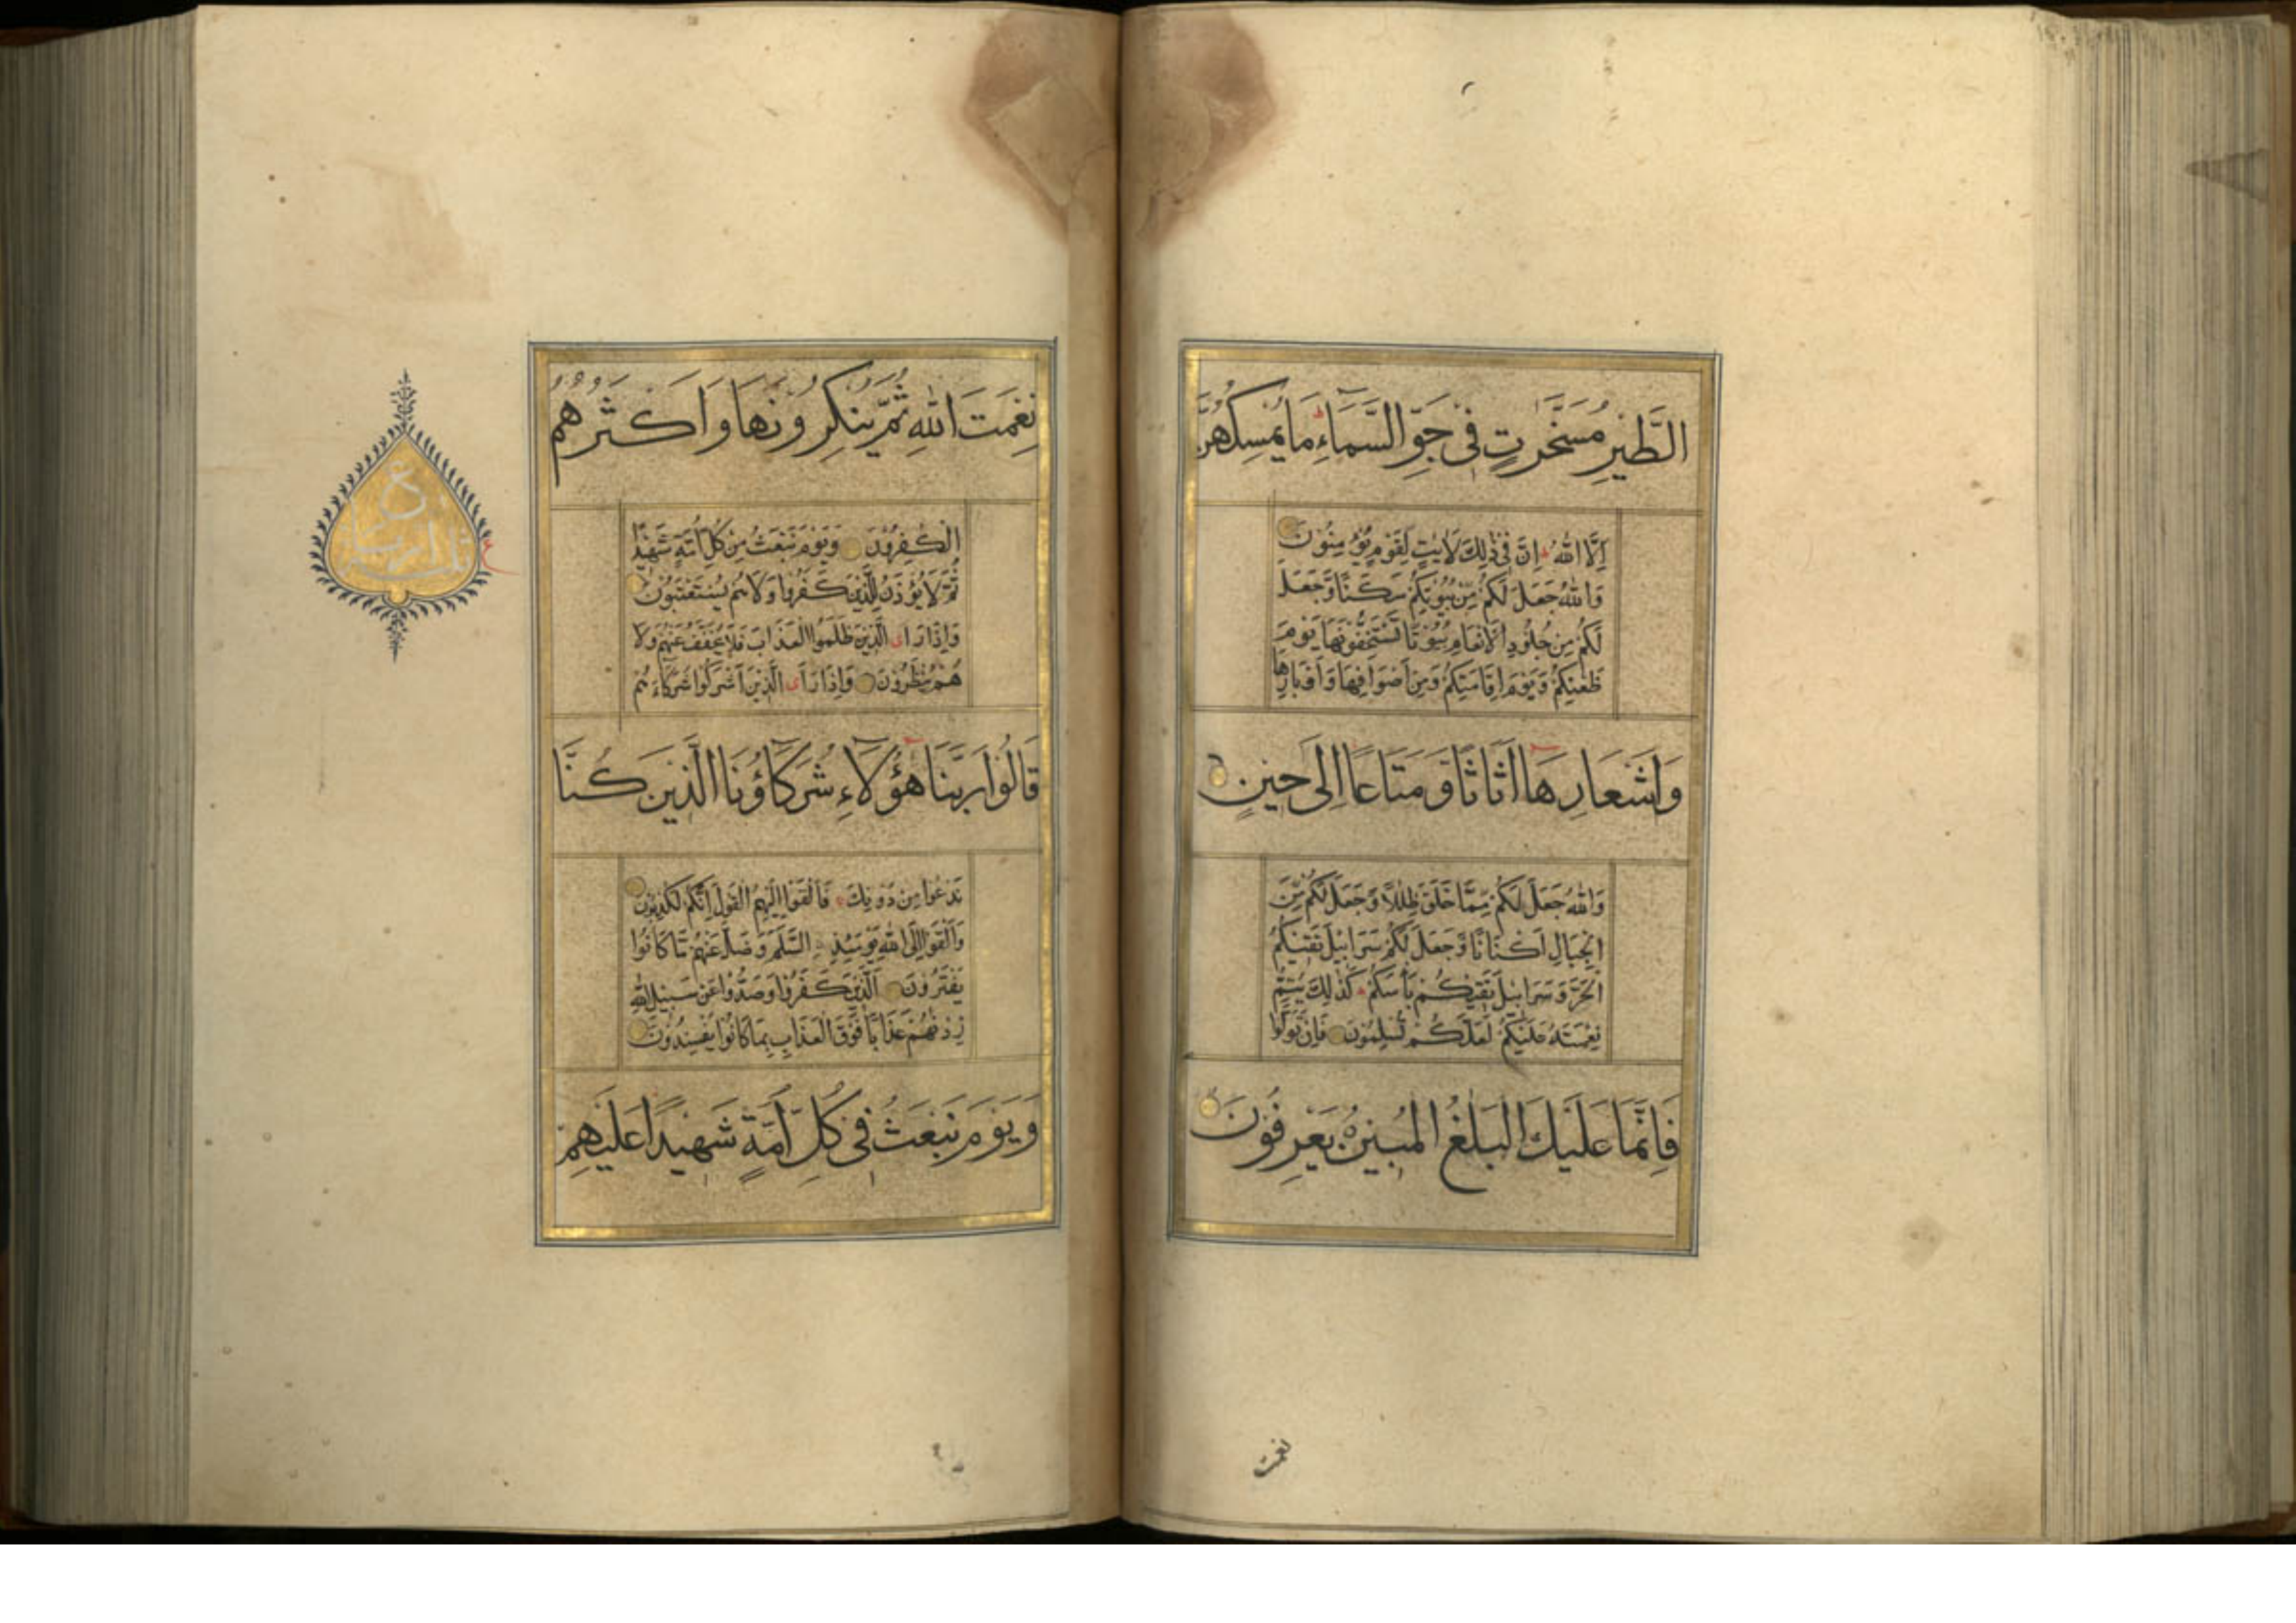 الطَّيْرِ مُسَخَّرٰتٍ فِي جَوِّ السَّمَآءِ ط مَا يُمْسِكُهُنَّ
اِلَّا اللهُ اِنَّ فِي ذٰلِكَ لَاٰيٰتٍ لِقَوْمٍ يُؤْمِنُوْنَ
وَاللهُ جَعَلَ لَكُمْ مِّنْ بُيُوْتِكُمْ سَكَنًا وَّجَعَلَ
لَكُمْ مِنْ جُلُوْدِ الْاَنْعَامِ بُيُوْتًا تَسْتَخِفُّوْنَهَا يَوْمَ
ظَعْنِكُمْ وَيَوْمَ اِقَامَتِكُمْ وَمِنْ اَصْوَافِهَا وَاَوْبَارِهَا
وَاَشْعَارِهَا اَثَاثًا وَّمَتَاعًا اِلٰى حِيْنٍ
وَاللهُ جَعَلَ لَكُمْ مِّمَّا خَلَقَ ظِلٰلًا وَّجَعَلَ لَكُمْ مِّنَ
الْجِبَالِ اَكْنَانًا وَّجَعَلَ لَكُمْ سَرَابِيْلَ تَقِيْكُمُ
الْحَرَّ وَسَرَابِيْلَ تَقِيْكُمْ بَاْسَكُمْ كَذٰلِكَ يُتِمُّ
نِعْمَتَهُ عَلَيْكُمْ لَعَلَّكُمْ تُسْلِمُوْنَ فَاِنْ تَوَلَّوْا
فَاِنَّمَا عَلَيْكَ الْبَلٰغُ الْمُبِيْنُ ٥ يَعْرِفُوْنَ
نعمت
نِعْمَتَ اللهِ ثُمَّ يُنْكِرُوْنَهَا وَاَكْثَرُهُمُ
الْكٰفِرُوْنَ وَيَوْمَ نَبْعَثُ مِنْ كُلِّ اُمَّةٍ شَهِيْدًا
ثُمَّ لَا يُؤْذَنُ لِلَّذِيْنَ كَفَرُوْا وَلَا هُمْ يُسْتَعْتَبُوْنَ
وَاِذَا رَاَى الَّذِيْنَ ظَلَمُوا الْعَذَابَ فَلَا يُخَفَّفُ عَنْهُمْ وَلَا
هُمْ يُنْظَرُوْنَ وَاِذَا رَاَى الَّذِيْنَ اَشْرَكُوْا شُرَكَآءَهُمْ
قَالُوْا رَبَّنَا هٰٓؤُلَآءِ شُرَكَآؤُنَا الَّذِيْنَ كُنَّا
نَدْعُوْا مِنْ دُوْنِكَ فَاَلْقَوْا اِلَيْهِمُ الْقَوْلَ اِنَّكُمْ لَكٰذِبُوْنَ
وَاَلْقَوْا اِلَى اللهِ يَوْمَئِذٍ السَّلَمَ وَضَلَّ عَنْهُمْ مَّا كَانُوْا
يَفْتَرُوْنَ اَلَّذِيْنَ كَفَرُوْا وَصَدُّوْا عَنْ سَبِيْلِ اللهِ
زِدْنٰهُمْ عَذَابًا فَوْقَ الْعَذَابِ بِمَا كَانُوْا يُفْسِدُوْنَ
وَيَوْمَ نَبْعَثُ فِيْ كُلِّ اُمَّةٍ شَهِيْدًا عَلَيْهِمْ